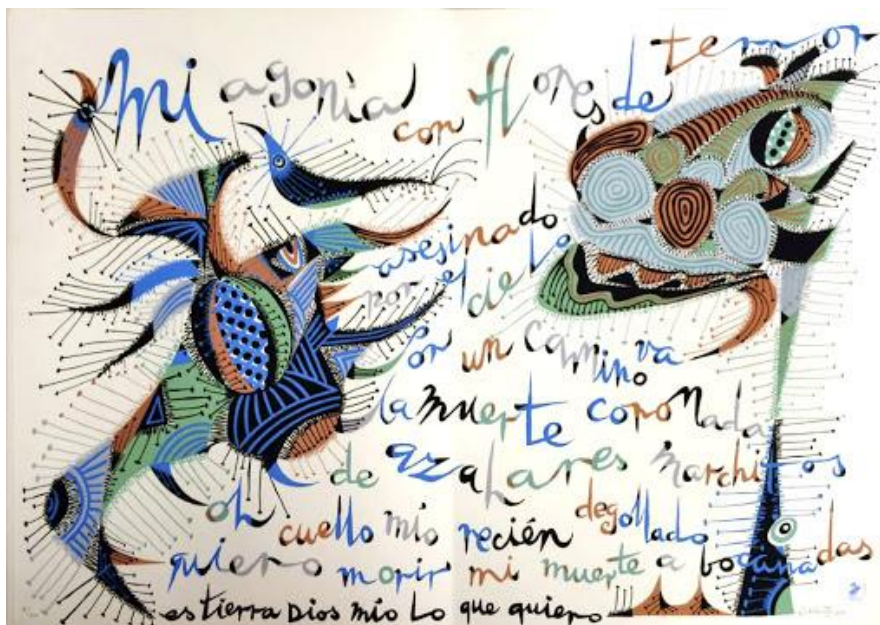 Mi agonía con flores de temor
asesinado
por el cielo
Por un camino va
la muerte coronada
de azahares marchitos
oh cuello mío recién degollado
quiero morir mi muerte a bocanadas
es tierra Dios mío lo que quiero